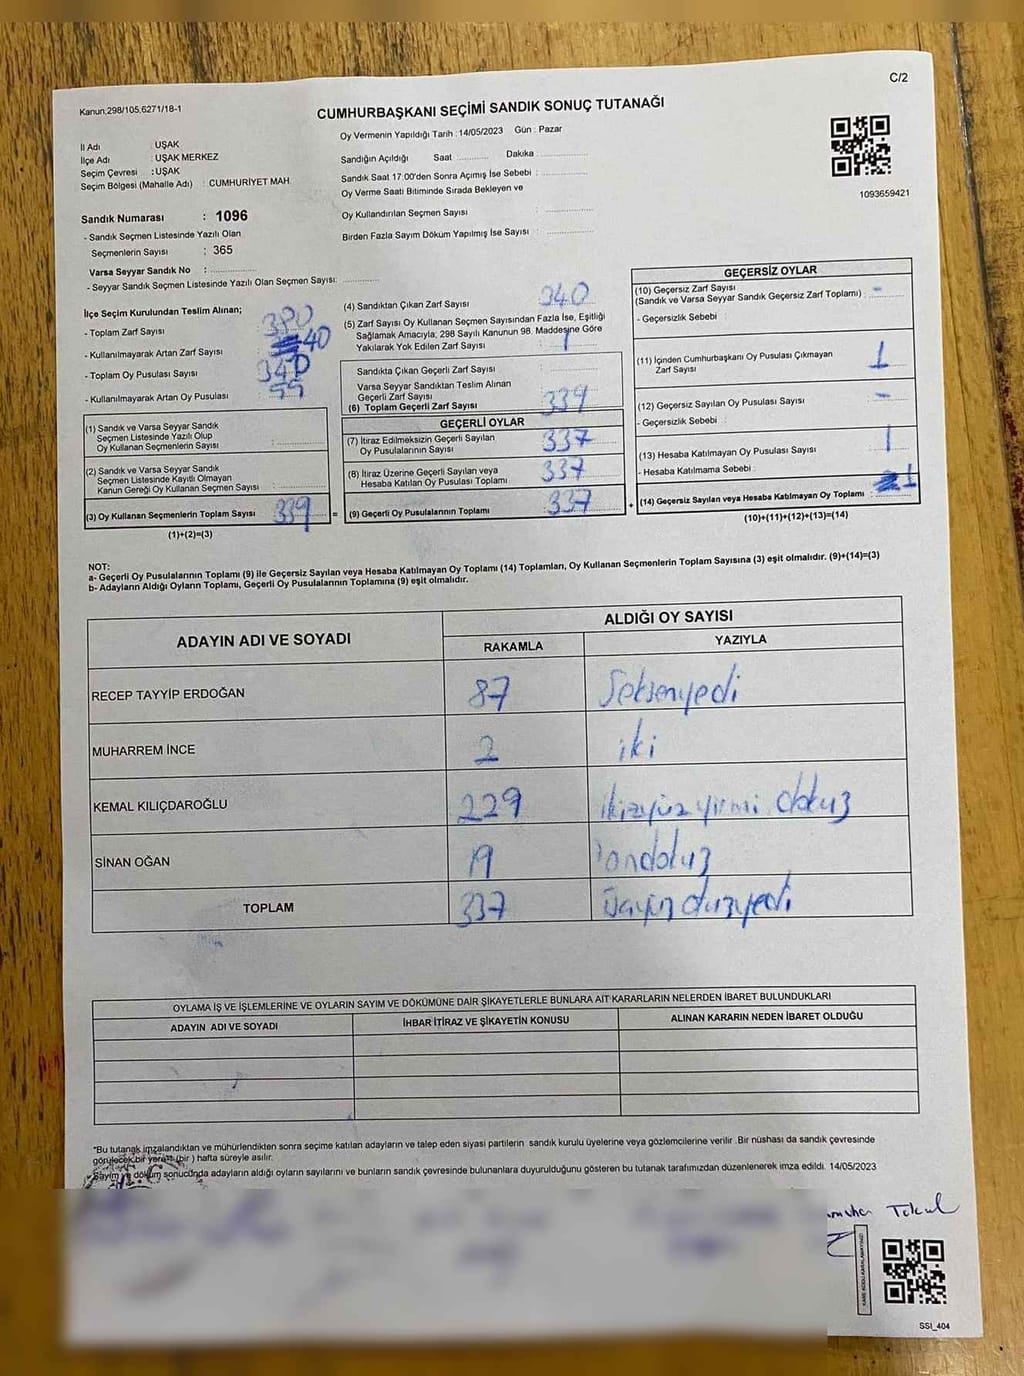 C/2
Kanun:298/105,6271/18-1
CUMHURBAŞKANI SEÇİMİ SANDIK SONUÇ TUTANAĞI
Oy Vermenin Yapıldığı Tarih : 14/05/2023 Gün : Pazar
İl Adı : UŞAK
İlçe Adı : UŞAK MERKEZ
Seçim Çevresi : UŞAK
Seçim Bölgesi (Mahalle Adı) : CUMHURİYET MAH.
Sandığın Açıldığı Saat ............ Dakika ............
Sandık Saat 17:00'den Sonra Açımış İse Sebebi :
Oy Verme Saati Bitiminde Sırada Bekleyen ve
Oy Kullandırılan Seçmen Sayısı :
Birden Fazla Sayım Döküm Yapılmış İse Sayısı :
1093659421
Sandık Numarası : 1096
- Sandık Seçmen Listesinde Yazılı Olan
Seçmenlerin Sayısı : 365
Varsa Seyyar Sandık No :
- Seyyar Sandık Seçmen Listesinde Yazılı Olan Seçmen Sayısı:
İlçe Seçim Kurulundan Teslim Alınan;
- Toplam Zarf Sayısı : 380
- Kullanılmayarak Artan Zarf Sayısı : 40
- Toplam Oy Pusulası Sayısı :
- Kullanılmayarak Artan Oy Pusulası :
(1) Sandık ve Varsa Seyyar Sandık
Seçmen Listesinde Yazılı Olup
Oy Kullanan Seçmenlerin Sayısı :
(2) Sandık ve Varsa Seyyar Sandık
Seçmen Listesinde Kayıtlı Olmayan
Kanun Gereği Oy Kullanan Seçmen Sayısı :
(3) Oy Kullanan Seçmenlerin Toplam Sayısı 339 =
(1)+(2)=(3)
(4) Sandıktan Çıkan Zarf Sayısı 340
(5) Zarf Sayısı Oy Kullanan Seçmen Sayısından Fazla İse, Eşitliği
Sağlamak Amacıyla, 298 Sayılı Kanunun 98. Maddesine Göre
Yakılarak Yok Edilen Zarf Sayısı : 1
Sandıkta Çıkan Geçerli Zarf Sayısı
Varsa Seyyar Sandıktan Teslim Alınan
Geçerli Zarf Sayısı
(6) Toplam Geçerli Zarf Sayısı 339
GEÇERLİ OYLAR
(7) İtiraz Edilmeksizin Geçerli Sayılan
Oy Pusulasının Sayısı : 337
(8) İtiraz Üzerine Geçerli Sayılan veya
Hesaba Katılan Oy Pusulası Toplamı 337
(9) Geçerli Oy Pusulalarının Toplamı 337 +
GEÇERSİZ OYLAR
(10) Geçersiz Zarf Sayısı
(Sandık ve Varsa Seyyar Sandık Geçersiz Zarf Toplamı) : -
- Geçersizlik Sebebi :
(11) İçinden Cumhurbaşkanı Oy Pusulası Çıkmayan
Zarf Sayısı : 1
(12) Geçersiz Sayılan Oy Pusulası Sayısı : -
- Geçersizlik Sebebi :
(13) Hesaba Katılmayan Oy Pusulası Sayısı : 1
- Hesaba Katılmama Sebebi :
(14) Geçersiz Sayılan veya Hesaba Katılmayan Oy Toplamı :
(10)+(11)+(12)+(13)=(14)
NOT:
a- Geçerli Oy Pusulalarının Toplamı (9) ile Geçersiz Sayılan veya Hesaba Katılmayan Oy Toplamı (14) Toplamları, Oy Kullanan Seçmenlerin Toplam Sayısına (3) eşit olmalıdır. (9)+(14)=(3)
b- Adayların Aldığı Oyların Toplamı, Geçerli Oy Pusulalarının Toplamına (9) eşit olmalıdır.
ADAYIN ADI VE SOYADI ALDIĞI OY SAYISI
RAKAMLA YAZIYLA
RECEP TAYYİP ERDOĞAN 87 Seksenyedi
MUHARREM İNCE 2 iki
KEMAL KILIÇDAROĞLU 229 ikizyüz yirmi dokuz
SİNAN OĞAN 19 ondokuz
TOPLAM 337
OYLAMA İŞ VE İŞLEMLERİNE VE OYLARIN SAYIM VE DÖKÜMÜNE DAİR ŞİKAYETLERLE BUNLARA AİT KARARLARIN NELERDEN İBARET BULUNDUKLARI
ADAYIN ADI VE SOYADI İHBAR İTİRAZ VE ŞİKAYETİN KONUSU ALINAN KARARIN NEDEN İBARET OLDUĞU
"Bu tutanak imzalandıktan ve mühürlendikten sonra seçime katılan adayların ve talep eden siyasi partilerin sandık kurulu üyelerine veya gözlemcilerine verilir .Bir nüshası da sandık çevresinde
görülecek bir yere 1 (bir ) hafta süreyle asılır.
Sayım ve döküm sonucunda adayların aldığı oyların sayılarını ve bunların sandık çevresinde bulunanlara duyurulduğunu gösteren bu tutanak tarafımızdan düzenlenerek imza edildi. 14/05/2023
SSI_404